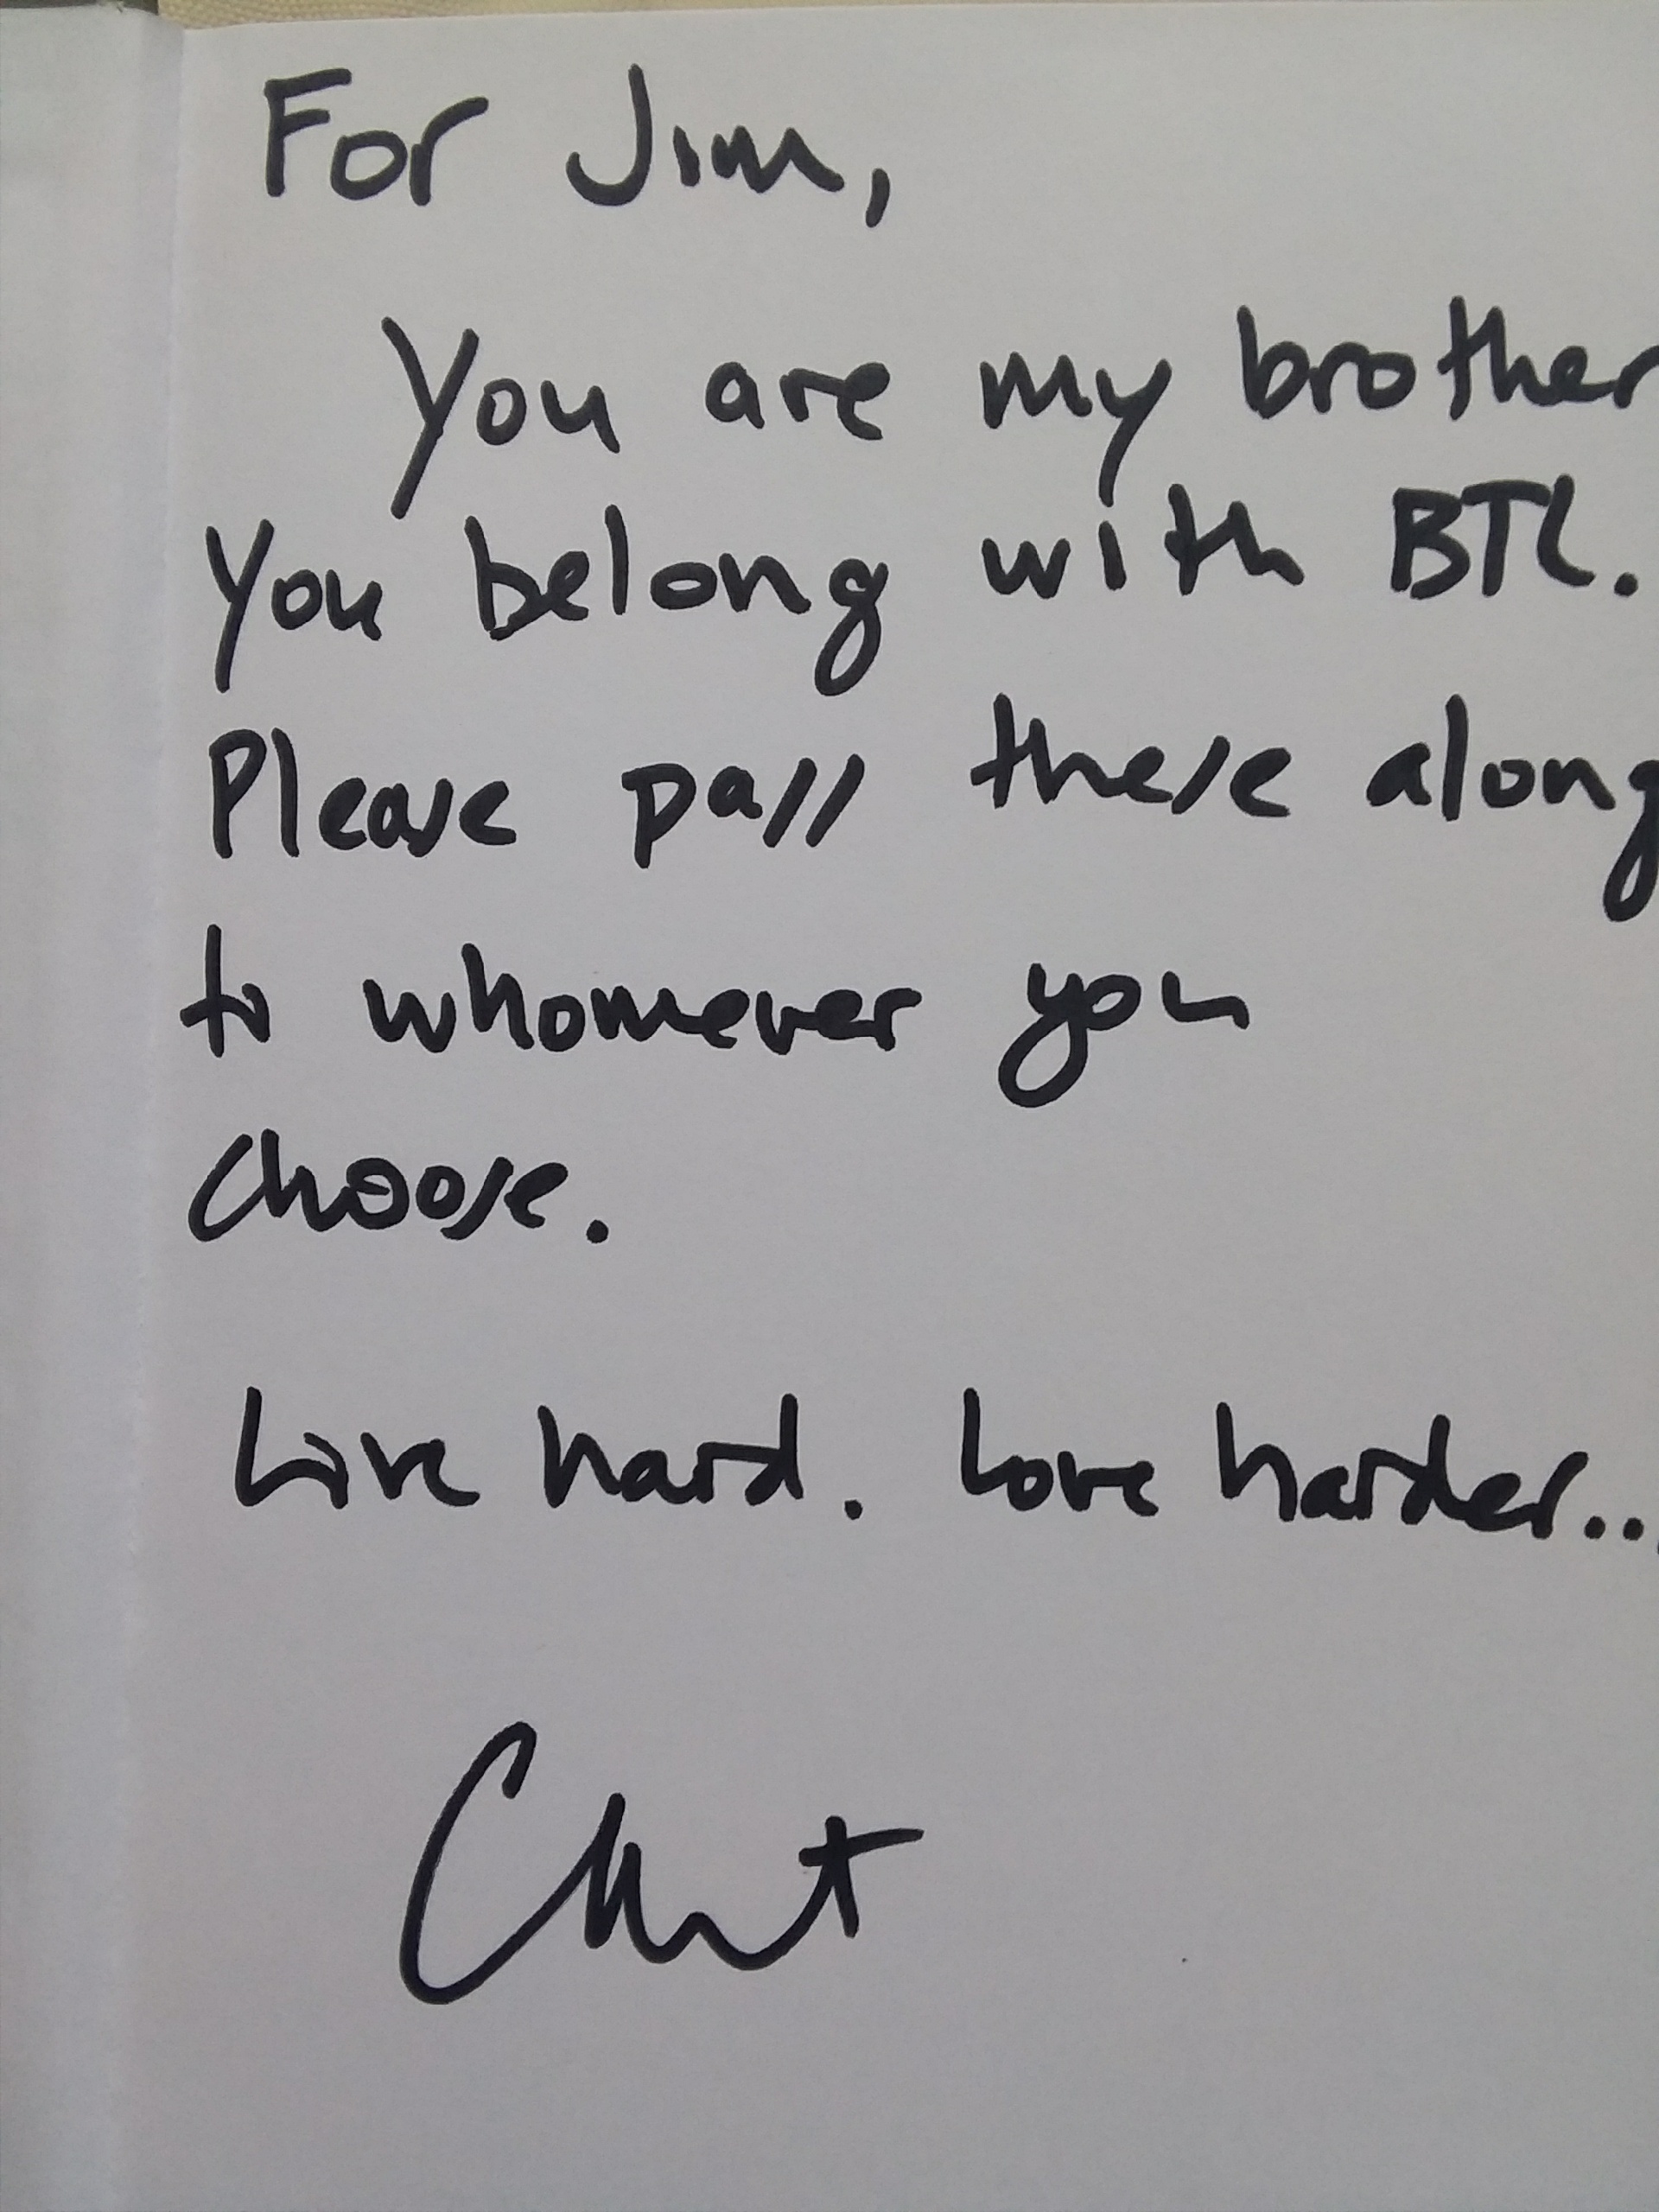 For Jim,
You are my brother
You belong with BTL.
Please pass these along
to whomever you
choose.
Live hard. Love harder...